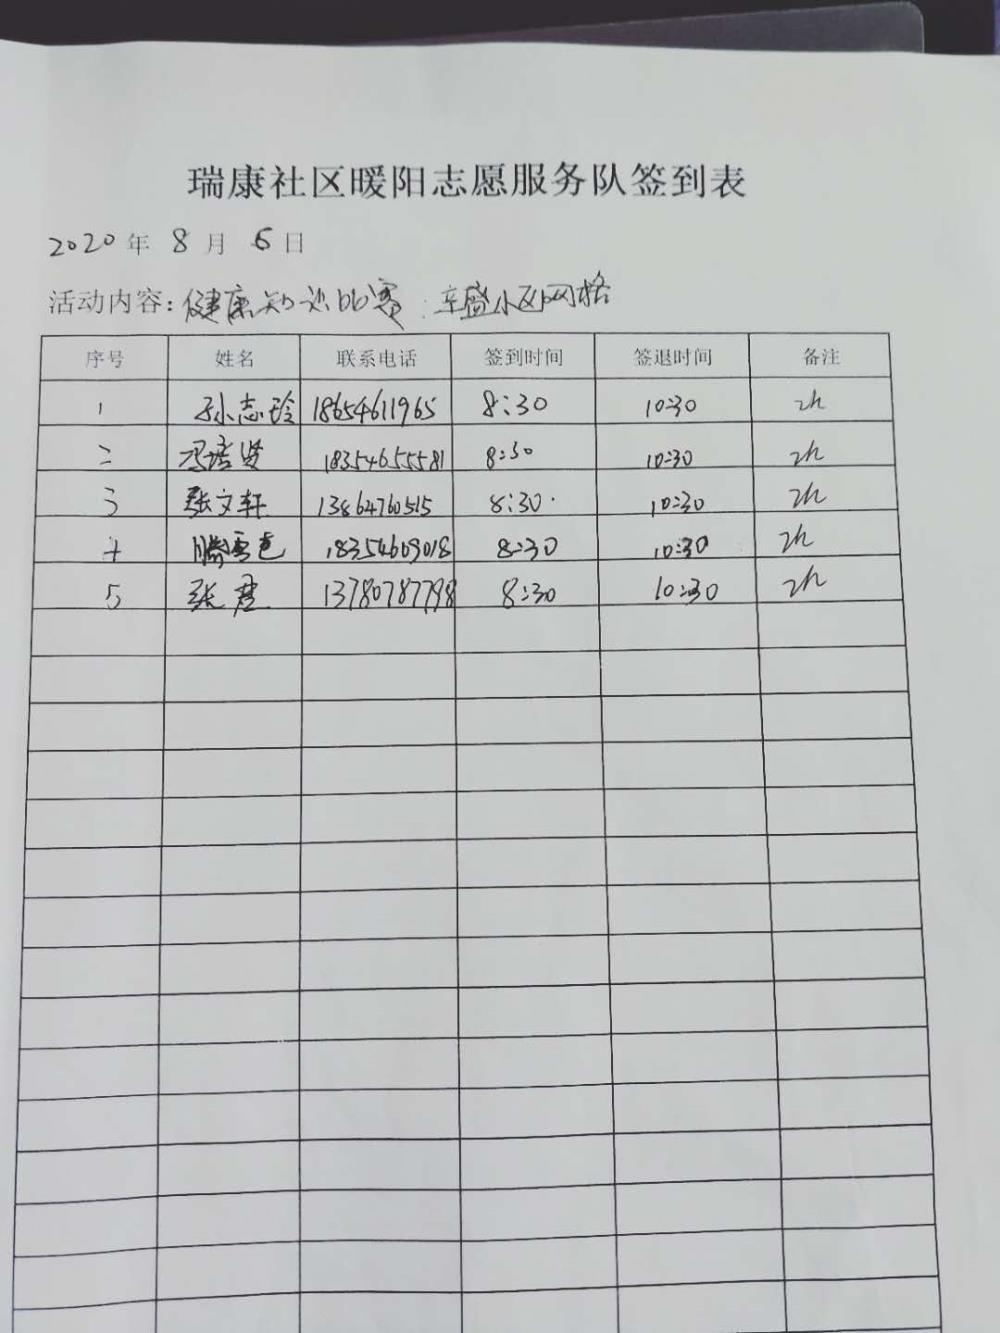 瑞康社区暖阳志愿服务队签到表
2020年 8 月 6 日
活动内容：健康知识比赛 辛盛小区网格
序号 姓名 联系电话 签到时间 签退时间 备注
1 孙志玲 18654611965 8:30 10:30 2h
二 冯培贤 18354655581 8:30 10:30 2h
3 张文轩 13864760515 8:30 10:30 2h
4 滕 18354609018 8:30 10:30 2h
5 张君 13780787798 8:30 10:30 2h